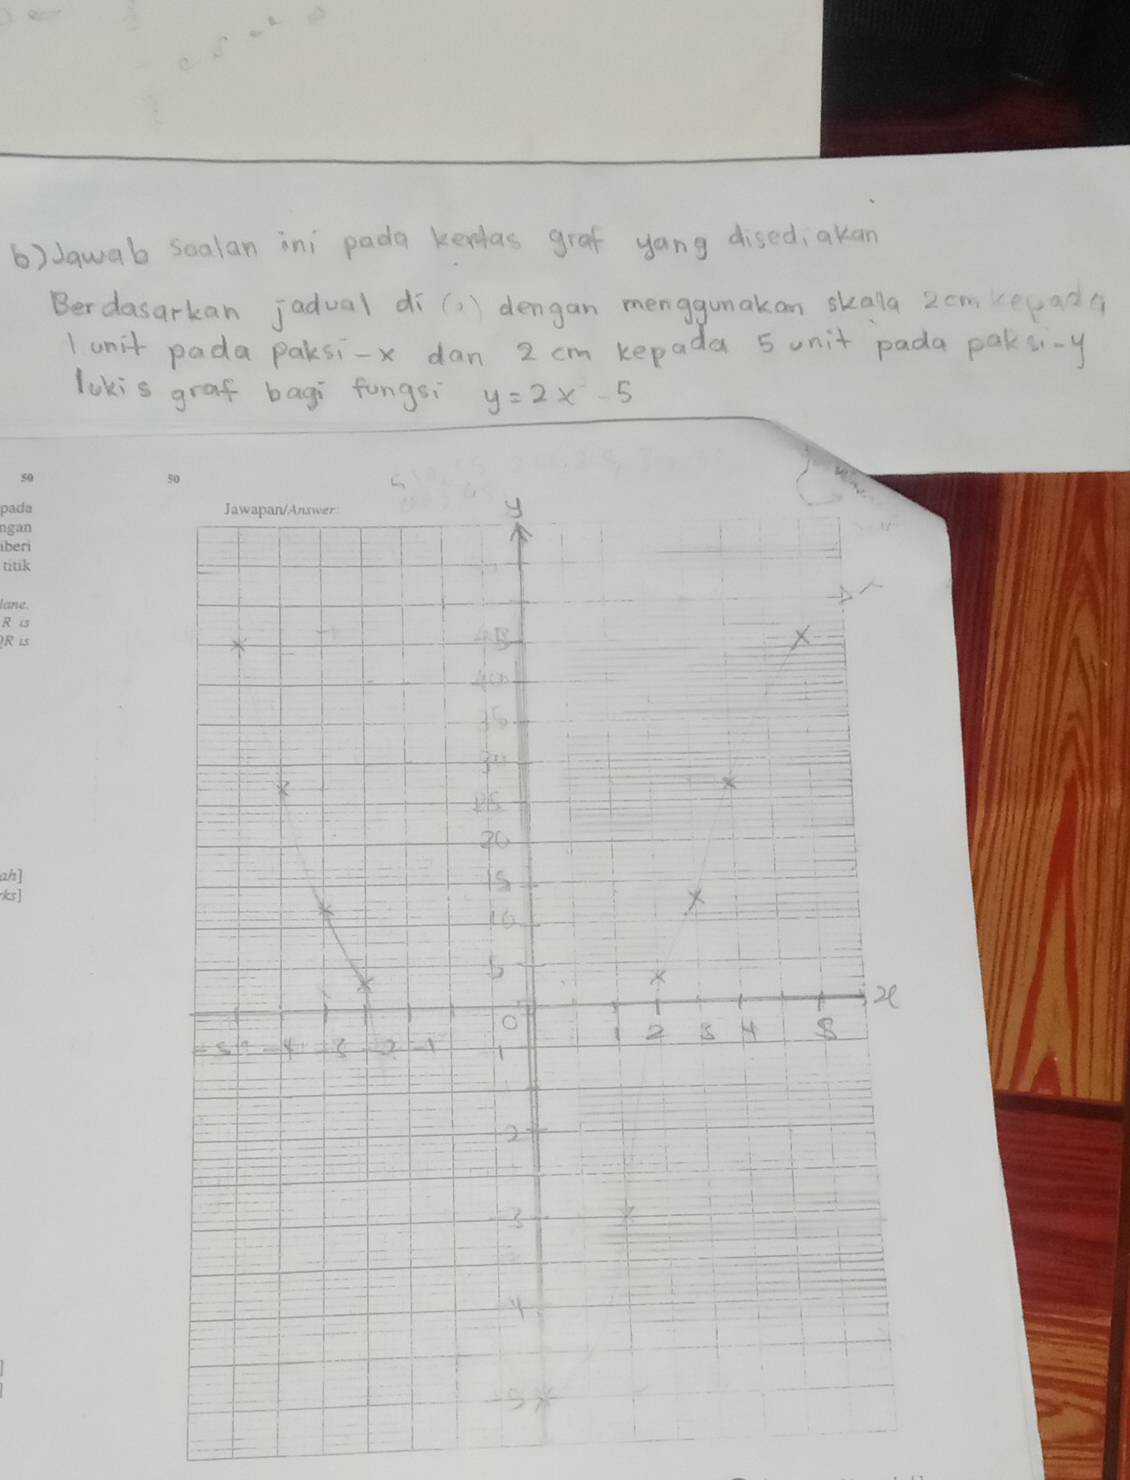 b) Jawab soalan ini pada kertas graf yang disediakan
Berdasarkan jadual di dengan menggunakan skala 2cm kepada
1 unit pada paksi-x dan 2 cm kepada 5 unit pada paksi-y
lukis graf bagi fungsi y=2x² - 5
50
50
pada
ngan
iberi
titik
lane.
R is
QR is
ah]
rks]
Jawapan/Answer:
y
45
40
35
30
25
20
15
10
5
0
x
-5 -4 -3 -2 -1
1 2 3 4 5
-1
-2
-3
-4
-5